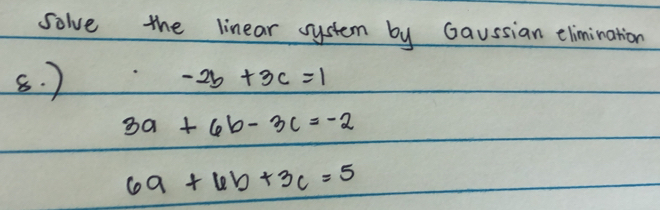 Solve the linear system by Gaussian elimination
8.) -2b + 3c = 1
3a + 6b - 3c = -2
6a + 6b + 3c = 5